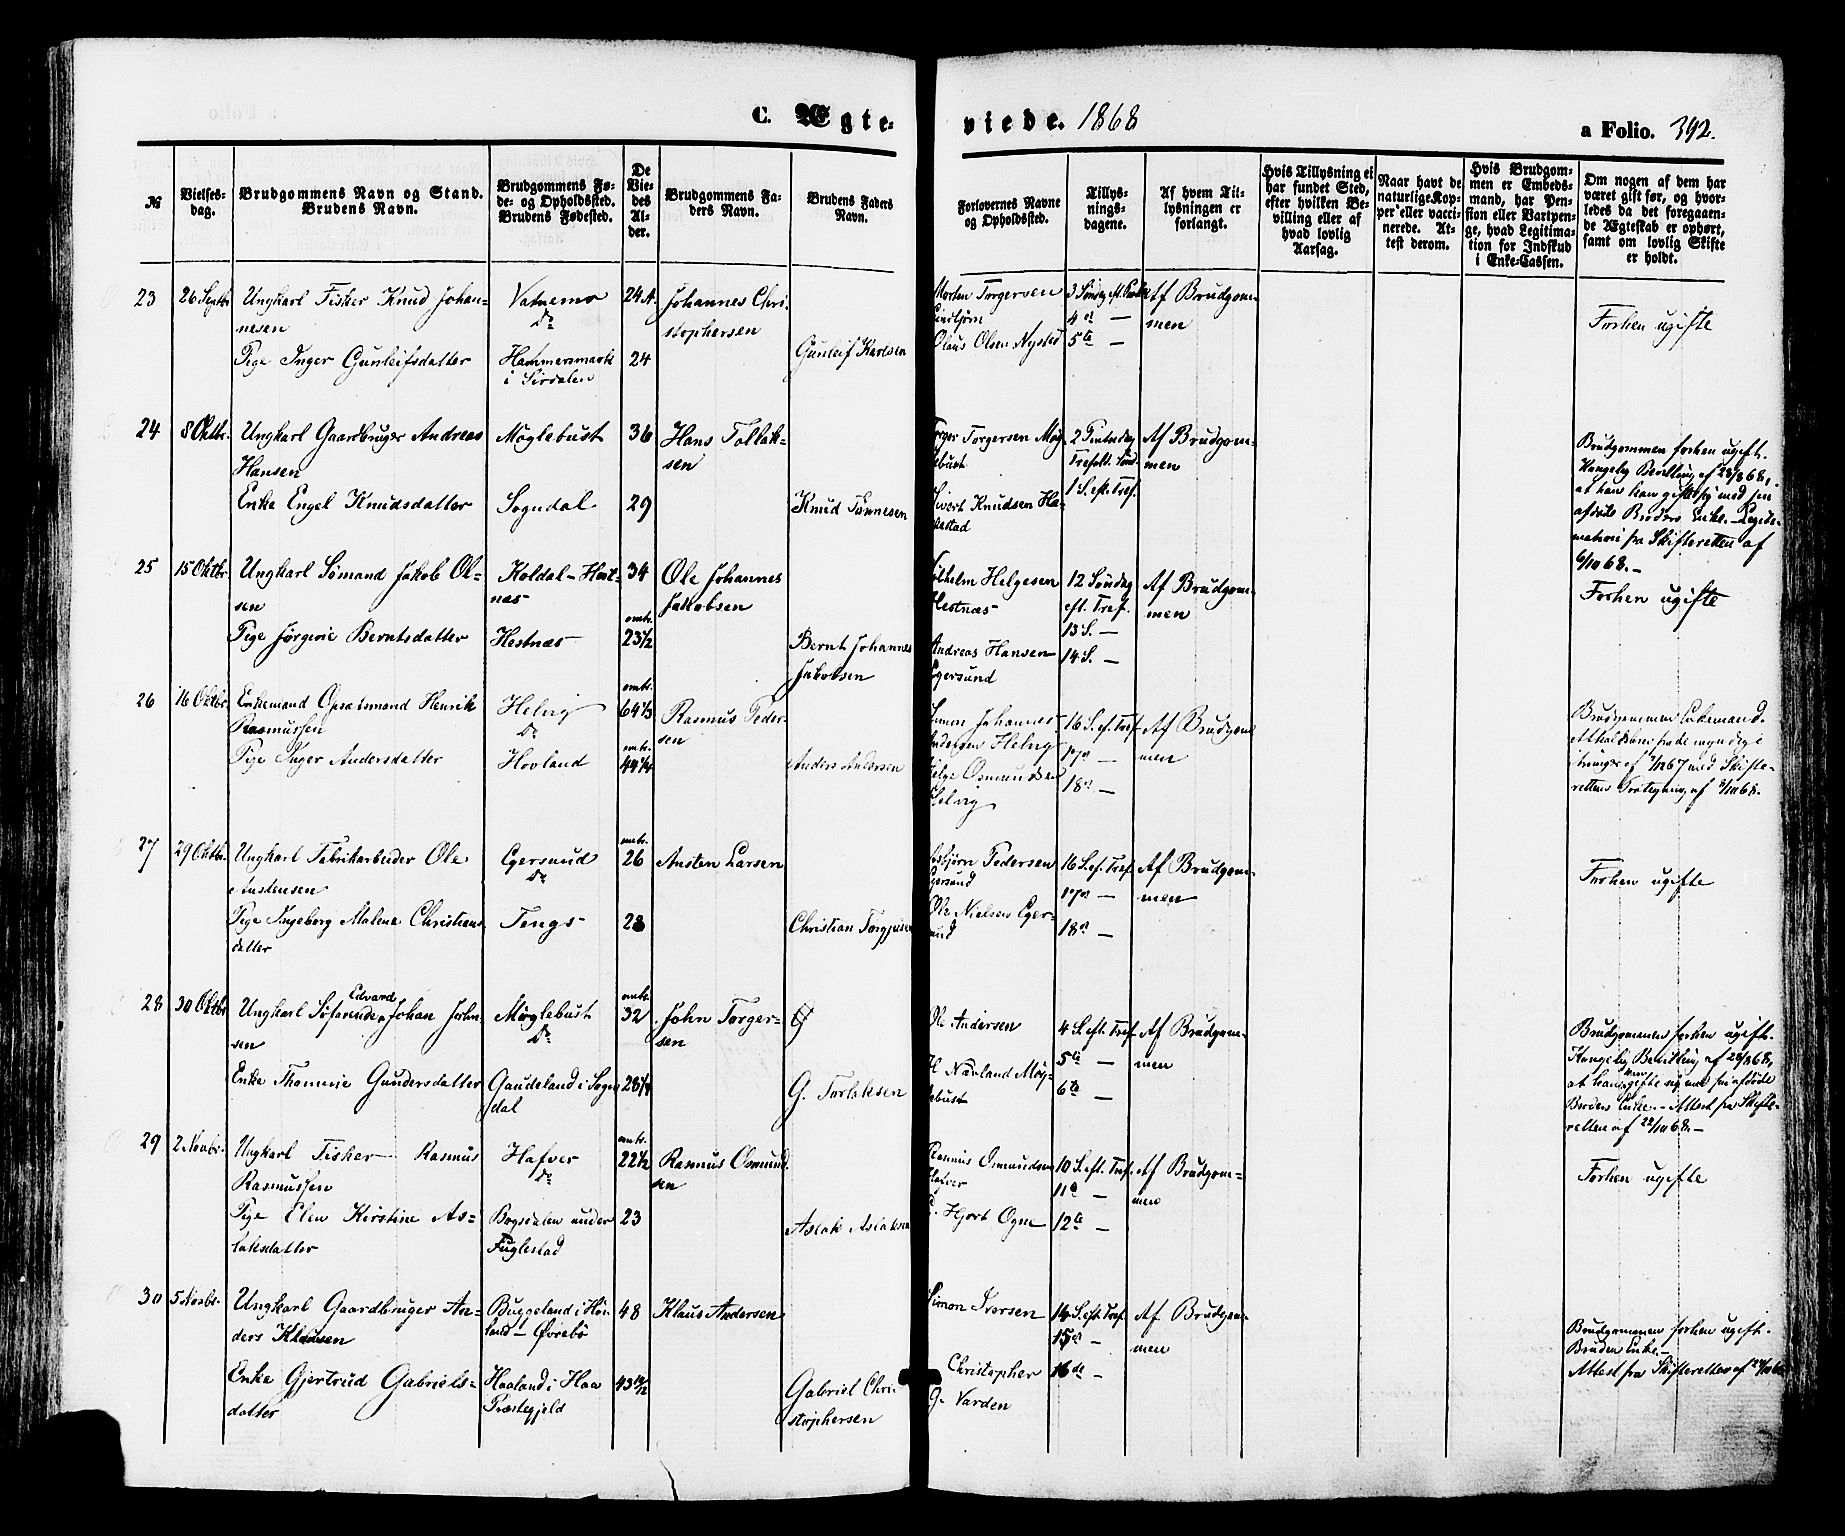 C. Ægte-
viede. 1868
a Folio. 392.
№
Vielses-
dag.
Brudgommens Navn og Stand.
Brudens Navn.
Brudgommens Fø-
de- og Opholdssted.
Brudens Fødested.
De
Vie-
des
Al-
der.
Brudgommens Fa-
ders Navn.
Brudens Faders
Navn.
Forlovernes Navne
og Opholdssted.
Tillys-
nings-
dagene.
Af hvem Til-
lysningen er
forlangt.
Hvis Tillysning ei
har fundet Sted,
efter hvilken Be-
villing eller af
hvad lovlig
Aarsag.
Naar havt de
naturlige Kop-
per eller vacci-
nerede. At-
test derom.
Hvis Brudgom-
men er Embeds-
mand, har Pen-
sion eller Vartpen-
ge, hvad Legitima-
tion for Indskud
i Enke-Cassen.
Om nogen af dem har
været gift før, og hvor-
ledes da det foregaaen-
de Ægteskab er ophørt,
samt om lovlig Skifte
er holdt.
23
26 Septbr
Ungkarl Fisker Knud Johan-
nesen
Pige Inger Gunleifsdatter
Vatnemo
Do
Hammersmark
i Sirdalen
24 A.
24
Johannes Chri-
stophersen
Gunleif Karlsen
Morten Torgersen
Olaus Olsen Nysted
4de —
5te —
Af Brudgom-
men
Forhen ugifte
24
8 Oktbr.
Ungkarl Gaardbruger Andreas
Hansen
Enke Engel Knudsdatter
Møglebust
Sogndal
36
29
Hans Tollak-
sen
Knud Tønnesen
Torgersen Møg-
lebust
Sivert Knudsen Ha-
2 Pintsedag
Trefolt. Sønd.
1 S. eft. Tref.
Af Brudgom-
men
Brudgommen forhen ugift.
Kongelig Bevilling af 28/8 68,
at han kan gifte sig med sin
afdøde Broders Enke. – Legiti-
mation fra Skifteretten af
6/10 68. –
25
15 Oktbr
Ungkarl Sømand Jakob Ol-
sen
Pige Jørgine Berntsdatter
Koldal – Hest-
næs
Hestnæs
34
omtr.
23 1/2
Ole Johannes
Jakobsen
Bernt Johannes
Jakobsen
Helgesen
Hestnæs
Andreas Hansen
Egersund
12 Søndag
eft. Tref.
13 S. —
14 S. —
Af Brudgom-
men
Forhen ugifte
26
16 Oktbr
Enkemand Opsædsmand Henrik
Rasmussen
Pige Inger Andersdatter
Helvig
Do
Hovland
omtr.
64 1/3
omtr.
44 1/4
Rasmus Peder-
sen
Anders Andersen
Johannes
Andersen Helvig
Helge Osmundsen
Helvig
16 S. ef. Tref.
17de —
18de —
Af Brudgom-
men
Brudgommen Enkemand.
rettens Paategning af 9/10 68.
27
29 Oktbr.
Ungkarl Fabrikarbeider Ole
Austensen
Pige Ingeborg Malene Christians-
datter
Egersund
Do
Tengs
omtr.
26
28
Austen Larsen
Christian Torgjusen
Asbjørn Pedersen
Egersund
Ole Nielsen Eger-
sund
16 S. ef. Tref.
17de —
18de —
Af Brudgom-
men
Forhen ugifte
28
30 Oktbr
Edvard
Ungkarl Søfarende Johan John-
sen
Enke Thomine Gundersdatter
Møglebust
Do
Gaudeland i Sogn-
dal
omtr.
32
28 1/4
John Torger-
sen
G. Torlaksen
Ole Andersen
H. Navland Møg-
lebust
4 S. eft. Tref.
5te —
6te —
Af Brudgom-
men
Brudgommen forhen ugift.
Kongelig Bevilling af 28/8 68,
at han kan gifte sig med sin afdøde
Broders Enke. – Attest fra Skifte-
retten af 22/10 68. –
29
2 Novbr.
Ungkarl Fisker Rasmus
Rasmussen
Pige Elen Kirstine As-
laksdatter
Hafver
Do
Bogsdalen under
Fuglestad
omtr.
22 1/2
23
Rasmus Osmund-
sen
Aslak Aslaksen
Rasmus Osmundsen
Hafver
Hjort Ogne
10 S. eft. Tref.
11te —
12te —
Af Brudgom-
men
Forhen ugifte
30
5 Novbr.
Ungkarl Gaardbruger An-
ders Klausen
Enke Gjertrud Gabriels-
datter
Buggeland i Høi-
land – Øvrebø
Haaland i Haa
Præstegjeld
48
43 10/12
Klaus Andersen
Gabriel Chri-
stophersen
Simon Iversen
Christopher
G. Varden
14 S. eft. Tref.
15de —
16de —
Af Brudgom-
men
Brudgommen forhen ugift.
Bruden Enke. –
Attest fra Skifteretten af